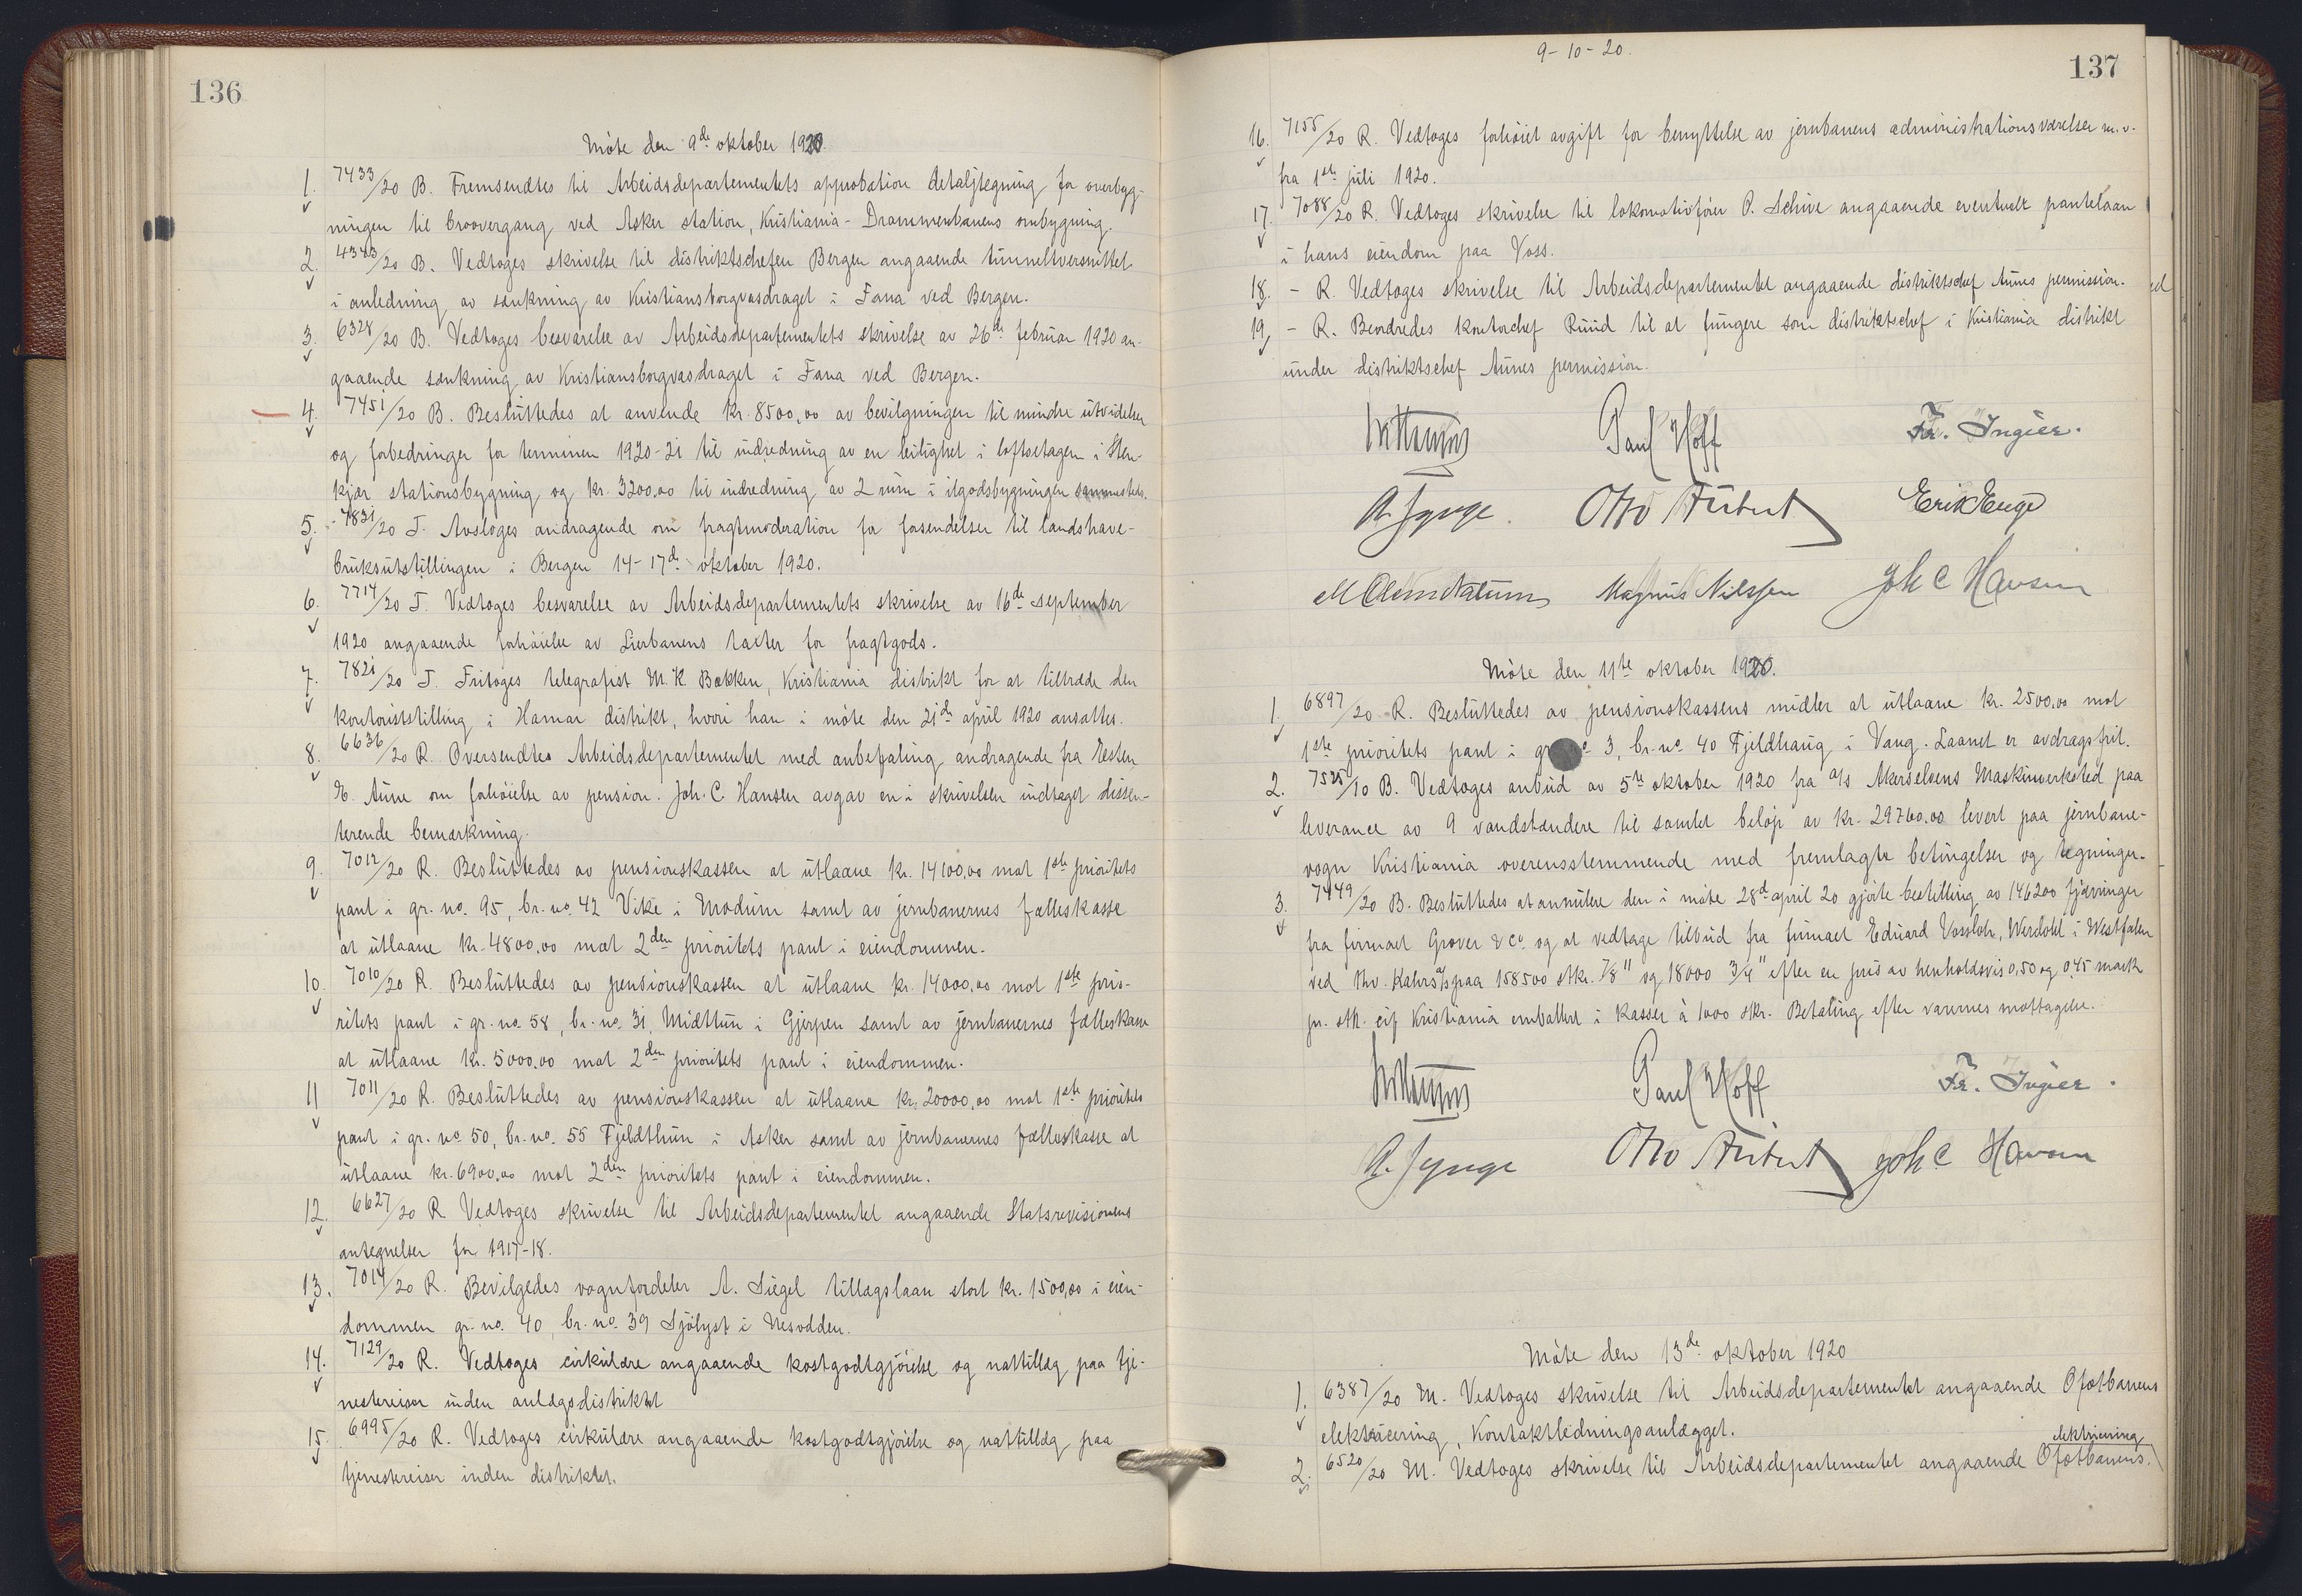 136
Møte den 9de oktober 1920.
1. 7433/20 B. Fremsendtes til Arbeidsdepartementets approbation detaljtegning for overbyg-
ningen til broovergang ved Asker station, Kristiania - Drammenbanens ombygning.
2. 4343/20 B. Vedtoges skrivelse til distriktschefen Bergen angaaende tunneltversnittet
i anledning av sænkning av Kristiansborgvasdraget i Fana ved Bergen.
3. 6328/20 B. Vedtoges besvarelse av Arbeidsdepartementets skrivelse av 26de februar 1920 an-
gaaende sænkning av Kristiansborgvasdraget i Fana ved Bergen.
4. 7451/20 B. Besluttedes at anvende kr. 8500,00 av bevilgningen til mindre utvidelser
og forbedringer for terminen 1920-21 til indredning av en leilighet i loftsetagen i Sten-
kjær stationsbygning og kr. 3200,00 til indredning av 2 rum i ilgodsbygningen sammesteds.
5. 7831/20 T. Avsloges andragende om fragtmoderation for forsendelser til landshave-
bruksutstillingen i Bergen 14-17de oktober 1920.
6. 7714/20 T. Vedtoges besvarelse av Arbeidsdepartementets skrivelse av 16de september
1920 angaaende forhøielse av Lierbanens takster for fragtgods.
7. 7821/20 T. Fritoges telegrafist M. K. Bakken, Kristiania distrikt for at tiltræde den
kontoriststilling i Hamar distrikt, hvori han i møte den 21de april 1920 ansattes.
8. 6636/20 R. Oversendtes Arbeidsdepartementet med anbefaling andragende fra
E. Aune om forhøielse av pension. Joh. C. Hansen avgav en i skrivelsen indtaget dissen-
terende bemærkning.
9. 7012/20 R. Besluttedes av pensionskassen at utlaane kr. 14100,00 mot 1ste prioritets
pant i gr. no. 95, br. no. 42 Vike i Modum samt av jernbanernes fælleskasse
at utlaane kr. 4800,00 mot 2den prioritets pant i eiendommen.
10. 7010/20 R. Besluttedes av pensionskassen at utlaane kr. 14000,00 mot 1ste prio-
ritets pant i gr. no. 58, br. no. 31, Midttun i Gjerpen samt av jernbanernes fælleskasse
at utlaane kr. 5000,00 mot 2den prioritets pant i eiendommen.
11 7011/20 R. Besluttedes av pensionskassen at utlaane kr. 20000,00 mot 1ste prioritets
pant i gr. no. 50, br. no. 55 Fjeldthun i Asker samt av jernbanernes fælleskasse at
utlaane kr. 6900,00 mot 2den prioritets pant i eiendommen.
12. 6627/20 R Vedtoges skrivelse til Arbeidsdepartementet angaaende Statsrevisionens
antegnelser for 1917-18.
13. 7014/20 R. Bevilgedes vognfordeler A. Siegel tillægslaan stort kr. 1500,00 i eien-
dommen gr. no. 40, br. no. 39 Sjølyst i Nesodden.
14. 7129/20 R. Vedtoges cirkulære angaaende kostgodtgjørelse og nattillæg paa tje-
nestereiser inden anlægsdistriktet
15. 6995/20 R. Vedtoges cirkulære angaaende kostgodtgjørelse og nattillæg paa
tjenestereiser inden distriktet.
9-10-20.
137
16. 7155/20 R. Vedtoges forhøiet avgift for benyttelse av jernbanens administrationsværelser m.v.
fra 1ste juli 1920.
17. 7088/20 R. Vedtoges skrivelse til lokomotivfører O. Schive angaaende eventuelt pantelaan
i hans eiendom paa Voss.
18. - R. Vedtoges skrivelse til Arbeidsdepartementet angaaende distriktschef Aunes permission.
19, - R. Beordredes kontorchef Ruud til at fungere som distriktschef i Kristiania distrikt
under distriktschef Aunes permission.
Paul Hoff Fr. Ingier.
Otto Aubert Erik Enge
Magnus Nilssen Joh C Hansen
Møte den 11te oktober 1920.
1. 6897/20 R. Besluttedes av pensionskassens midler at utlaane kr. 2500,00 mot
1ste prioritets pant i gr 3, br. no. 40 Fjeldhaug i Vang. Laanet er avdragsfrit.
2. 7525/10 B. Vedtoges anbud av 5te oktober 1920 fra A/S Akerselvens Maskinverksted paa
leverance av 9 vandstandere til samlet beløp av kr. 29760,00 levert paa jernbane-
vogn Kristiania overensstemmende med fremlagte betingelser og tegninger.
3. 7449/20 B. Besluttedes at annulere den i møte 28de april 20 gjorte bestilling av 146200 fjærringer
fra firmaet Grover & Co. og at vedtage tilbud fra firmaet Eduard Vossloh, Werdohl i Westfalen
ved Thv. Kahrs A/S paa 158500 stkr. 7/8" og 18000 3/4" efter en pris av henholdsvis 0,50 og 0,45 mark
pr. stk. cif Kristiania emballert i kasser à 1000 stkr. Betaling efter varernes mottagelse.
Paul Hoff Fr. Ingier.
Otto Aubert Joh C Hansen
Møte den 13de oktober 1920
1. 6387/20 M. Vedtoges skrivelse til Arbeidsdepartementet angaaende Ofotbanens
elektricering, Kontaktledningsanlægget.
elektricering
2. 6520/20 M. Vedtoges skrivelse til Arbeidsdepartementet angaaende Ofotbanens.